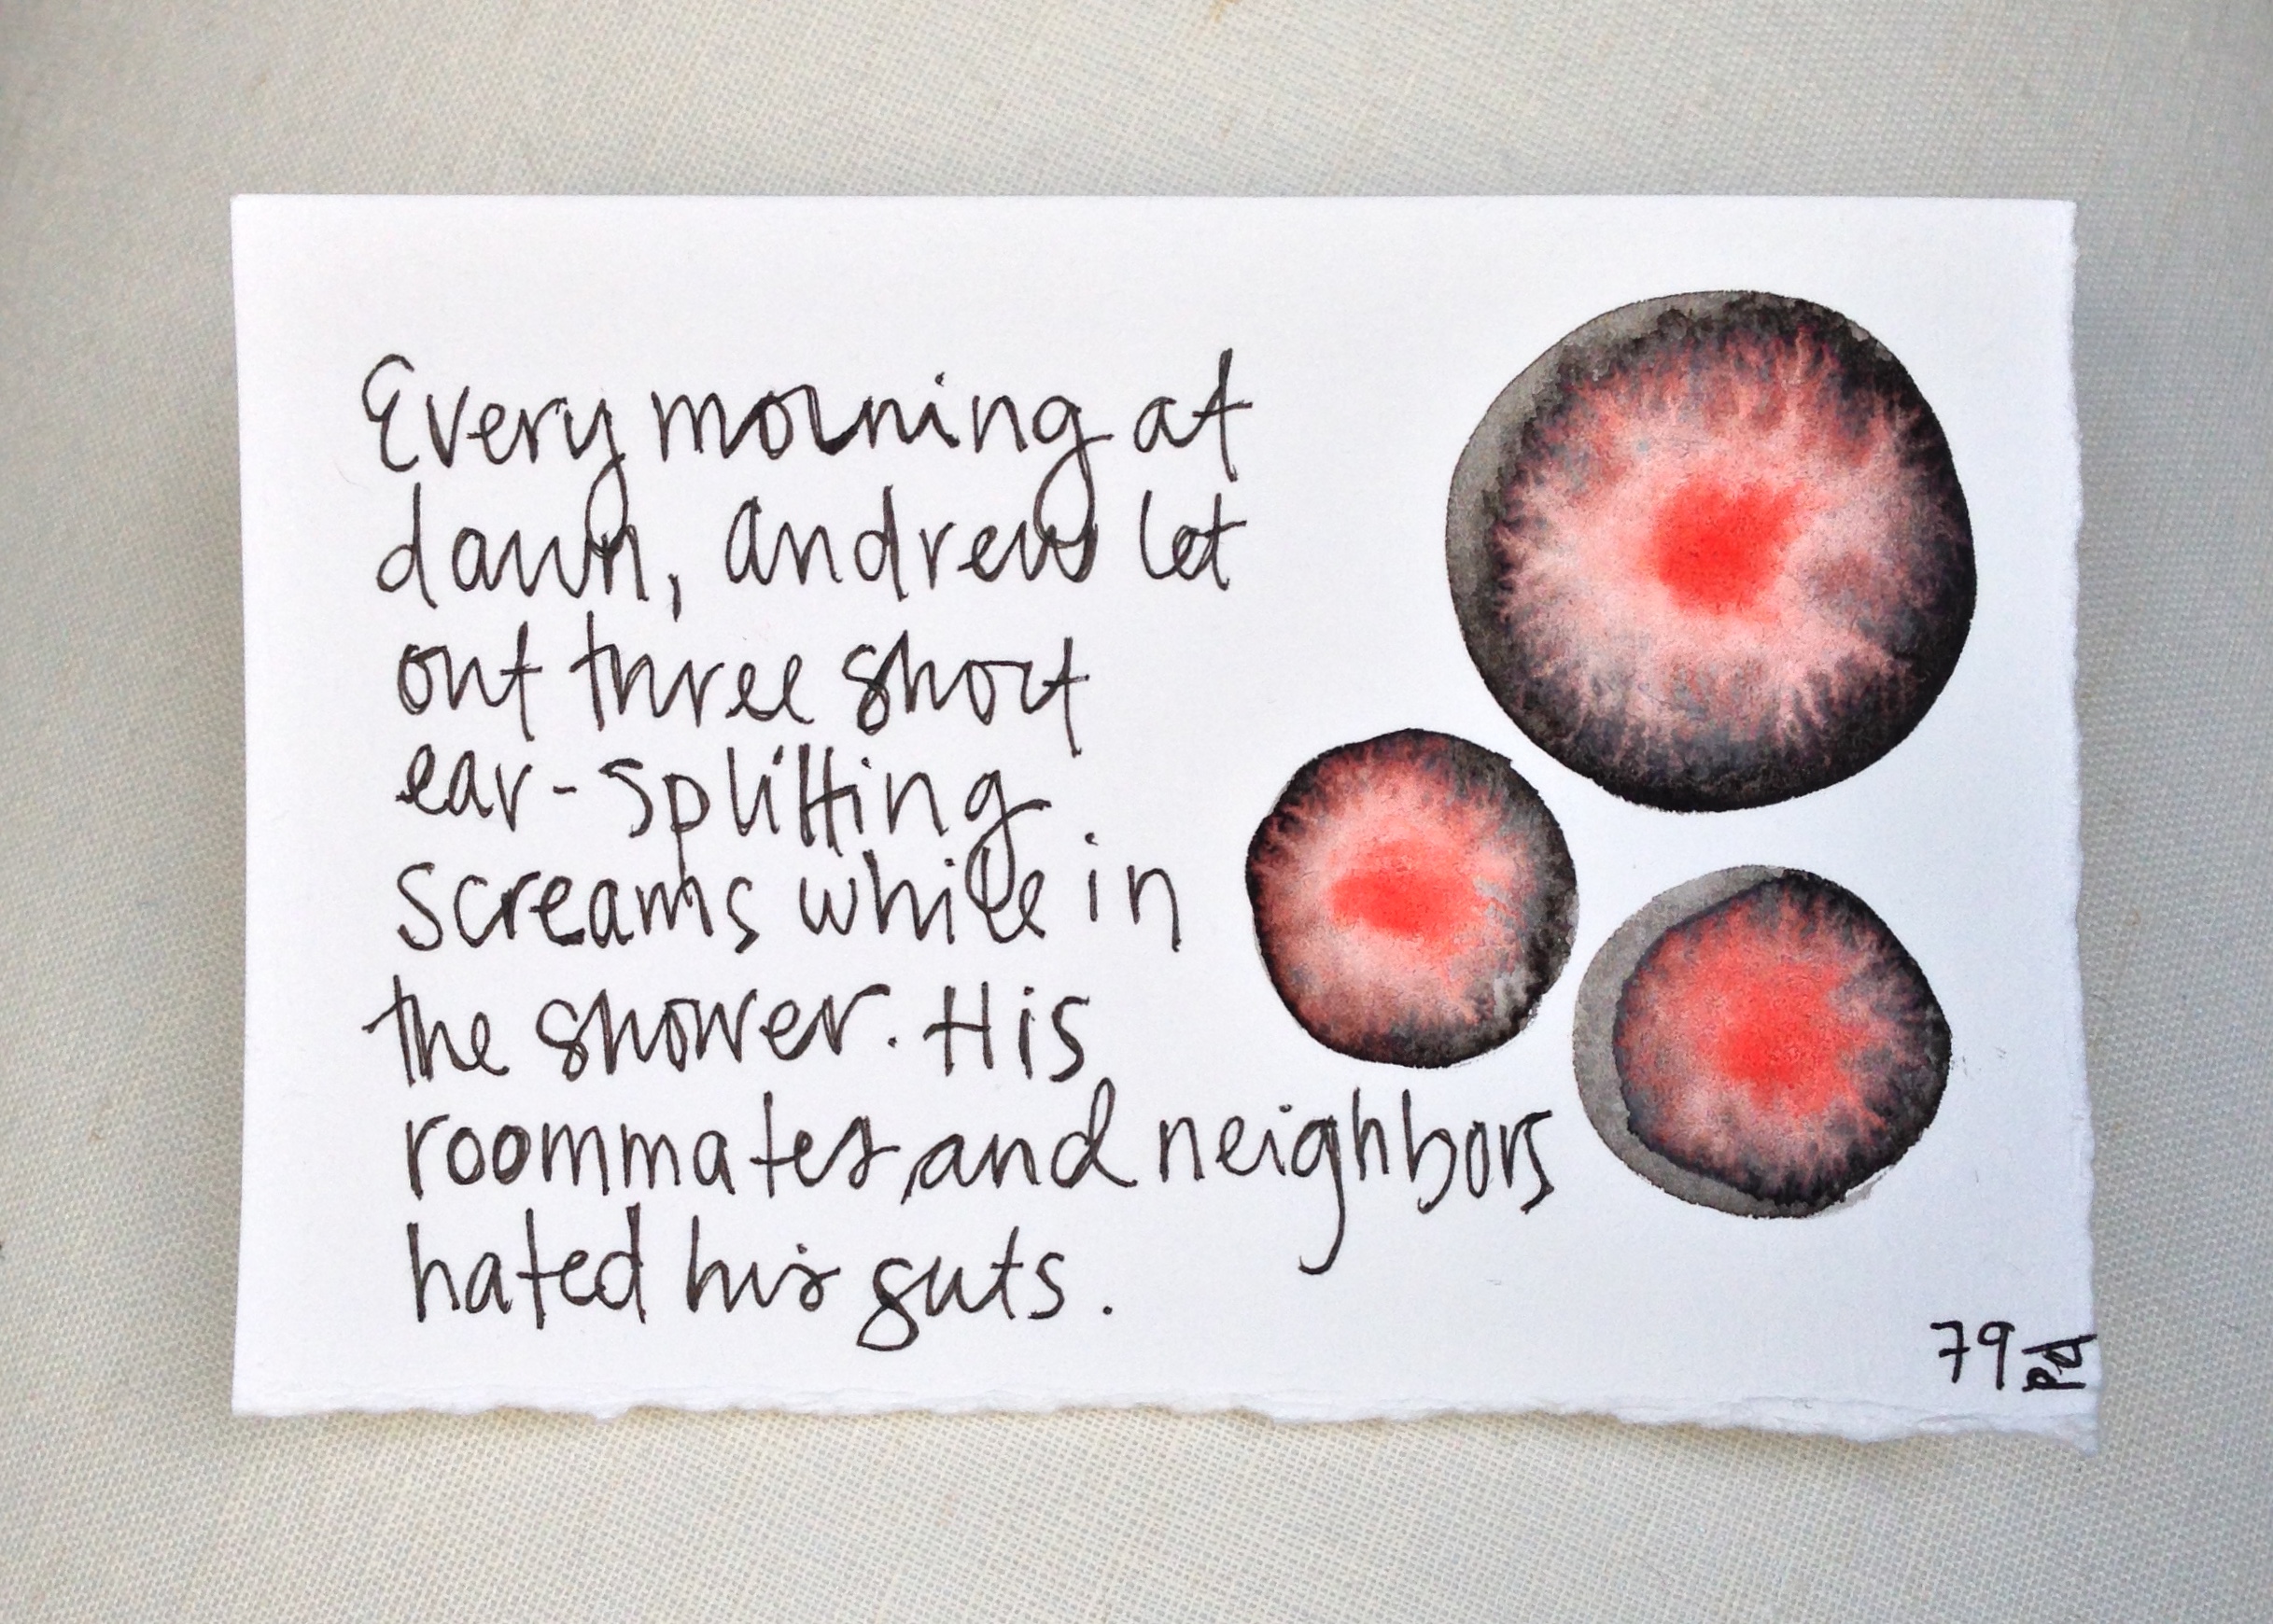 Every morning at
dawn, Andrew let
out three short
ear-splitting
screams while in
the shower. His
roommates and neighbors
hated his guts.
79